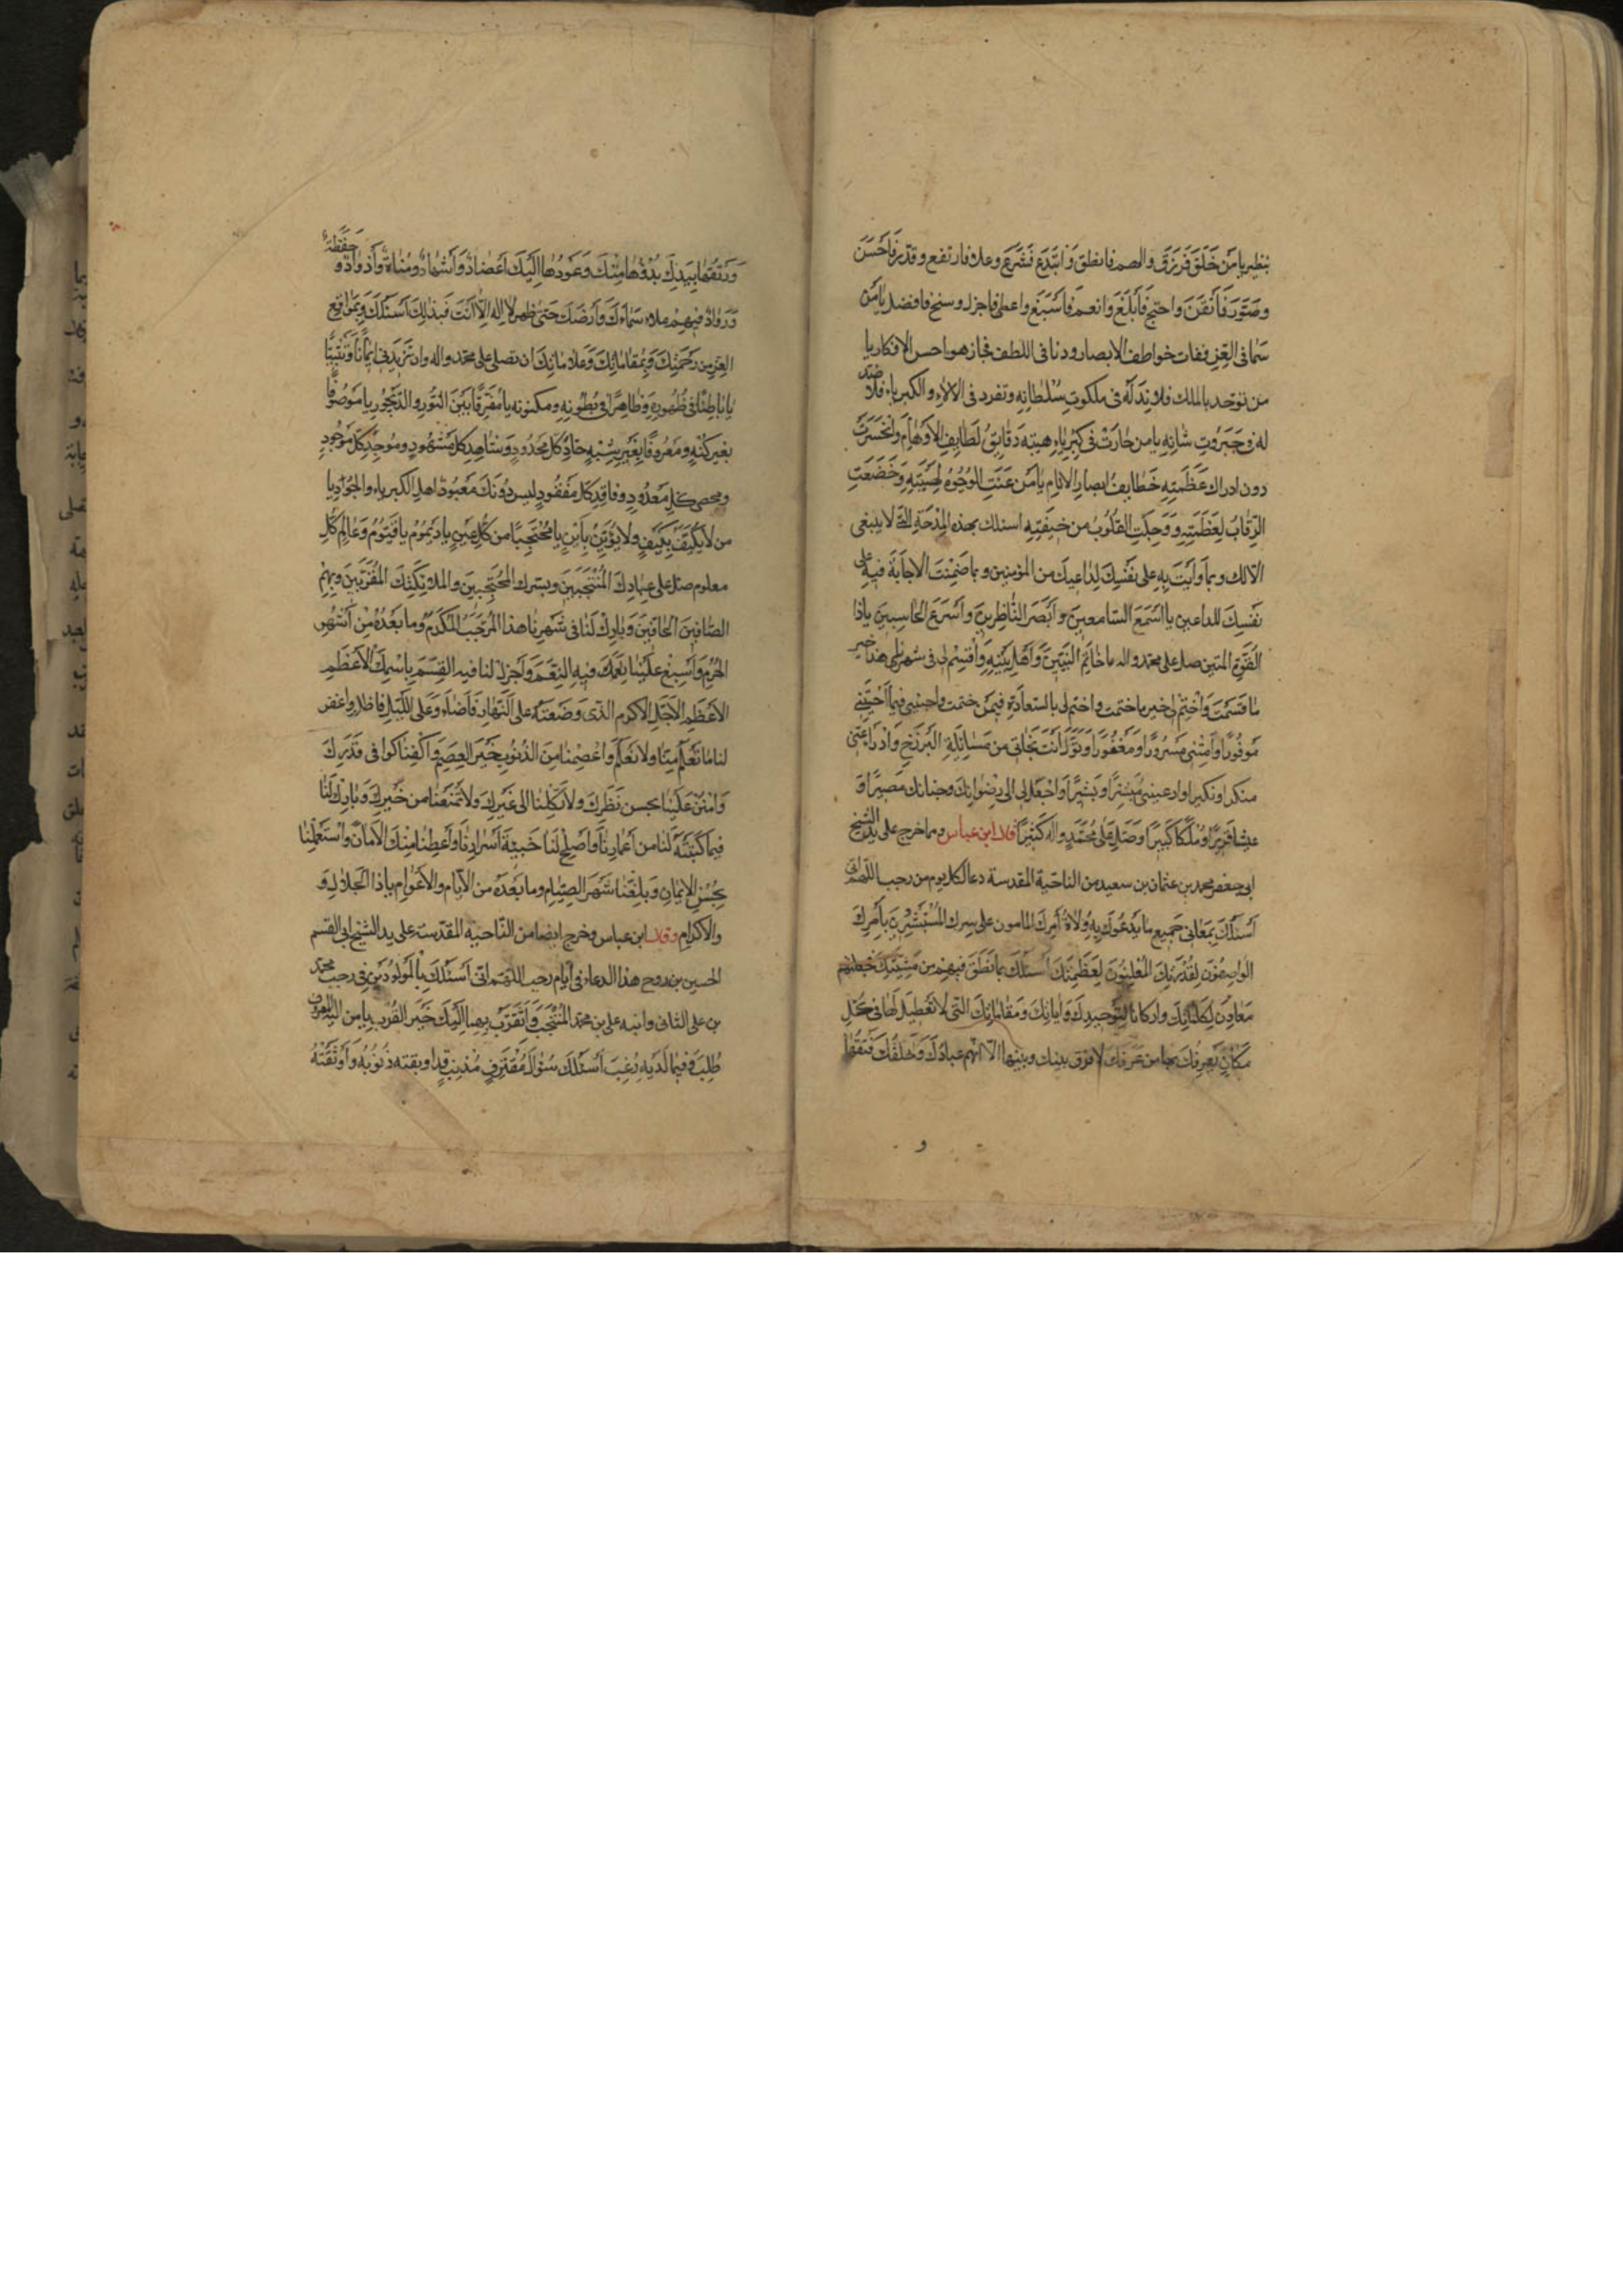 بنظير يا من خَلَقَ فَرَزَقَ والهم فانطق وَابتَدَعَ فَشَرَعَ وعلا فارتفع وقدّر فَاَحْسَنَ
وصَوَّرَ فَاَتقَنَ واحتج فَاَبلَغَ وانعم فَاَسْبَغَ واعطى فاجزل وسنح فافضل يا مَن
سَمَا فى العِزِ ففات خواطف الابصار ودنا فى اللطف فجاز هواجس الافكار يا
من توحد بالملك فلا نِدَّ لَهُ فى ملكوتِ سُلْطانِهِ وتفرد فى الآلاءِ والكبرياء فلا ضدّ
له فى جَبَروتِ شانِهِ يا من حارَتْ فى كِبْرِياءِ هيبته دَقايِقُ لَطايِفِ الاَوْهامِ وانْحَسَرَتْ
دون ادراك عَظَمَتِهِ خَطايِفُ ابصارِ الانامِ يا مَن عَنَتِ الوُجُوهُ لِهَيْبَتِهِ وَخَضَعَتِ
الرِّقابُ لِعَظَمَتِهِ وَوَجِلَتِ القُلُوبُ من خيفَتِهِ اسئلك بهذه المِدْحَةِ التى لا ينبغى
الا لك وبما وَاَيْتَ بِهِ على نَفْسِكَ لِداعيكَ من المؤمنين وبما ضَمِنْتَ الاجابَةَ فيه على
نَفْسِكَ للداعين يا اَسْمَعَ السّامعينَ وَاَبْصَرَ النّاظِرينَ وَاَسْرَعَ الحاسِبينَ يا ذا
القُوَّةِ المتين صل على محمّد واله خاتَمِ النَّبِيّينَ وَاَهْلِ بَيْتِهِ وَاَقْسِمْ لى فى شهرنا هذا خير
ما قَسَمْتَ وَاخْتِمْ لى خير ما ختمت واختم لى بالسّعادَةِ فيمَن ختمت واحينى فيما اَحْيَيْتَنى
مَوفُورًا وَاَمِتْنى مَسْرُورًا ومَغْفُورًا وَتَوَلَّ اَنْتَ نجاتى من مَسْائَلَةِ البَرْزَخِ وَادْرَاْ عَنّى
منكرا ونكيرا وارعينى مُبَشِّرًا وبَشيرًا وَاجْعَلْ لى الى رِضْوانِكَ وجنانك مَصيرًا وَ
عيشا قريرًا ومُلكًا كَبيرًا وَصَلِّ عَلى مُحَمَّدٍ واله كَثيرًا قال ابن عياس ومما خرج على يد الشيخ
ابى جعفر محمد بن عثمان بن سعيد من الناحية المقدسة دعا لكل يوم من رجب اللّهمّ انى
اَسْئَلُكَ بِمَعانى جَميعِ ما يَدعُوكَ بِهِ وُلاةُ اَمرِكَ المامون على سِرِّك المُسْتَبْشِرُونَ بِاَمْرِكَ
الواصِفُونَ لِقُدْرَتِكَ المُعْلِنُونَ لِعَظَمَتِكَ اسئلك بما نَطَقَ فيهِمْ من مَشِيَّتِكَ فجعلتهم
مَعادِنَ لِكَلِماتِكَ واركانا لِتَوحيدِكَ وَاياتِكَ وَمَقاماتِكَ التى لا تَعْطيلَ لَها فى كُلِّ
مَكانٍ يَعرِفُكَ بها من عَرَفَكَ لا فرق بينك وبينها الّا انّهم عبادُكَ وَخلقُكَ فَتقُها
وَرَتقُها بِيَدِكَ بُدؤُها مِنْكَ وَعَودُها اِلَيكَ اَعْضادٌ وَاَشهادٌ ومُناةٌ وَاَذوادٌ وحَفَظَةٌ
وَرُوّادٌ فبهِم ملات سَماءَكَ وَاَرضَكَ حَتّى ظهر لا اله اِلّا اَنتَ فَبِذلِكَ اَسْئَلُكَ وبِمَواقِعِ
العِزِّ من رَحمَتِكَ وَبِمَقاماتِكَ وَعَلاماتِكَ ان تصلى على محمّد واله وان تَزيدَنى ايمانًا وَتَثبيتًا
يا باطِنًا فى ظُهُورِهِ وَظاهِرًا فى بُطُونِهِ ومكنونه يا مُفَرِّقًا بَيْنَ النّورِ والدَّيْجُورِ يا مَوصُوفًا
بغير كُنْهٍ ومَعرُوفًا بِغَيرِ شِبْهٍ حادَّ كلّ مَحدُودٍ وَشاهِدَ كل مَشْهُودٍ ومُوجِدَ كلّ مَوْجُودٍ
ومحصى كلّ مَعدُودٍ وفاقِدَ كلّ مَفْقُودٍ ليس دُونَكَ مَعبُود اهلَ الكبرياء والجُودِ يا
من لا يُكَيَّفُ بِكَيفٍ ولا يُؤَيَّنُ بِاَينٍ يا مُحْتَجِبًا من كُلِّ عَينٍ يا دَيمُومُ يا قَيُّومُ وَعالِمَ كُلِّ
معلوم صل على عِبادِكَ المُنْتَجَبينَ وبشرك المُحْتَجِبينَ والملائِكَتِكَ المُقَرَّبينَ وبُهْمِ
الصّافّينَ الحافّينَ وَبارِكْ لَنا فى شَهرِنا هذا المُرَجَّبِ المُكَرَّمِ وما بَعدَهُ مِنْ اَشهُرِ
الحُرُمِ وَاَسْبِغْ عَلَيْنا نِعَمَكَ فيهِ النِّعَمَ وَاَجزِلْ لنا فيه القِسَمَ بِاسْمِكَ الاَعْظَمِ
الاَعظَمِ الاَجَلِّ الاكرم الذى وَضَعتَهُ على النَّهارِ فَاَضاءَ وَعَلى اللَّيلِ فاظلم واغفر
لنا ما تَعْلَمُ مِنّا ولا نَعْلَمُ وَاعْصِمْنا مِنَ الذُنُوبِ خَيْرَ العِصَمِ وَاكْفِنا كوافى قَدَرِكَ
وَامْنُنْ عَلَينا بحسن نَظَرِكَ ولا تَكِلْنا الى غَيْرِكَ ولا تَمْنَعْنا من خَيْرِكَ وَبارِكْ لَنا
فيما كَتَبْتَهُ لَنا من اَعمارِنا وَاَصلِحْ لَنا خَبيئَةَ اَسْرارِنا وَاَعْطِنا مِنْكَ الاَمانَ وَاسْتَعْمِلْنا
بِحُسْنِ الايمَانِ وَبَلِّغْنا شَهْرَ الصِّيامِ وما بَعْدَهُ من الاَيّام والاَعْوامِ يا ذَا الجَلالِ وَ
والاكرام وقال ابن عياس وخرج ايضا من النّاحية المقدّسة على يد الشيخ ابى القسم
الحسين بن روح هذا الدعاء فى ايام رجب اللّهمّ انّى اَسئَلُكَ بِالمَولُودَينِ فى رجب محمّد
بن على الثانى وابنه على بن محمد المُنْتَجَبِ وَاَتَقَرَّبُ بهما اِلَيكَ خَيرَ القُرَبِ يا من اليه المعروف
طُلِبَ وَفيما لَدَيهِ رُغِبَ اَسئَلُكَ سُؤالَ مُقْتَرِفٍ مُذنِبٍ قد اوبقته ذُنُوبُهُ وَاَوثَقَتْهُ